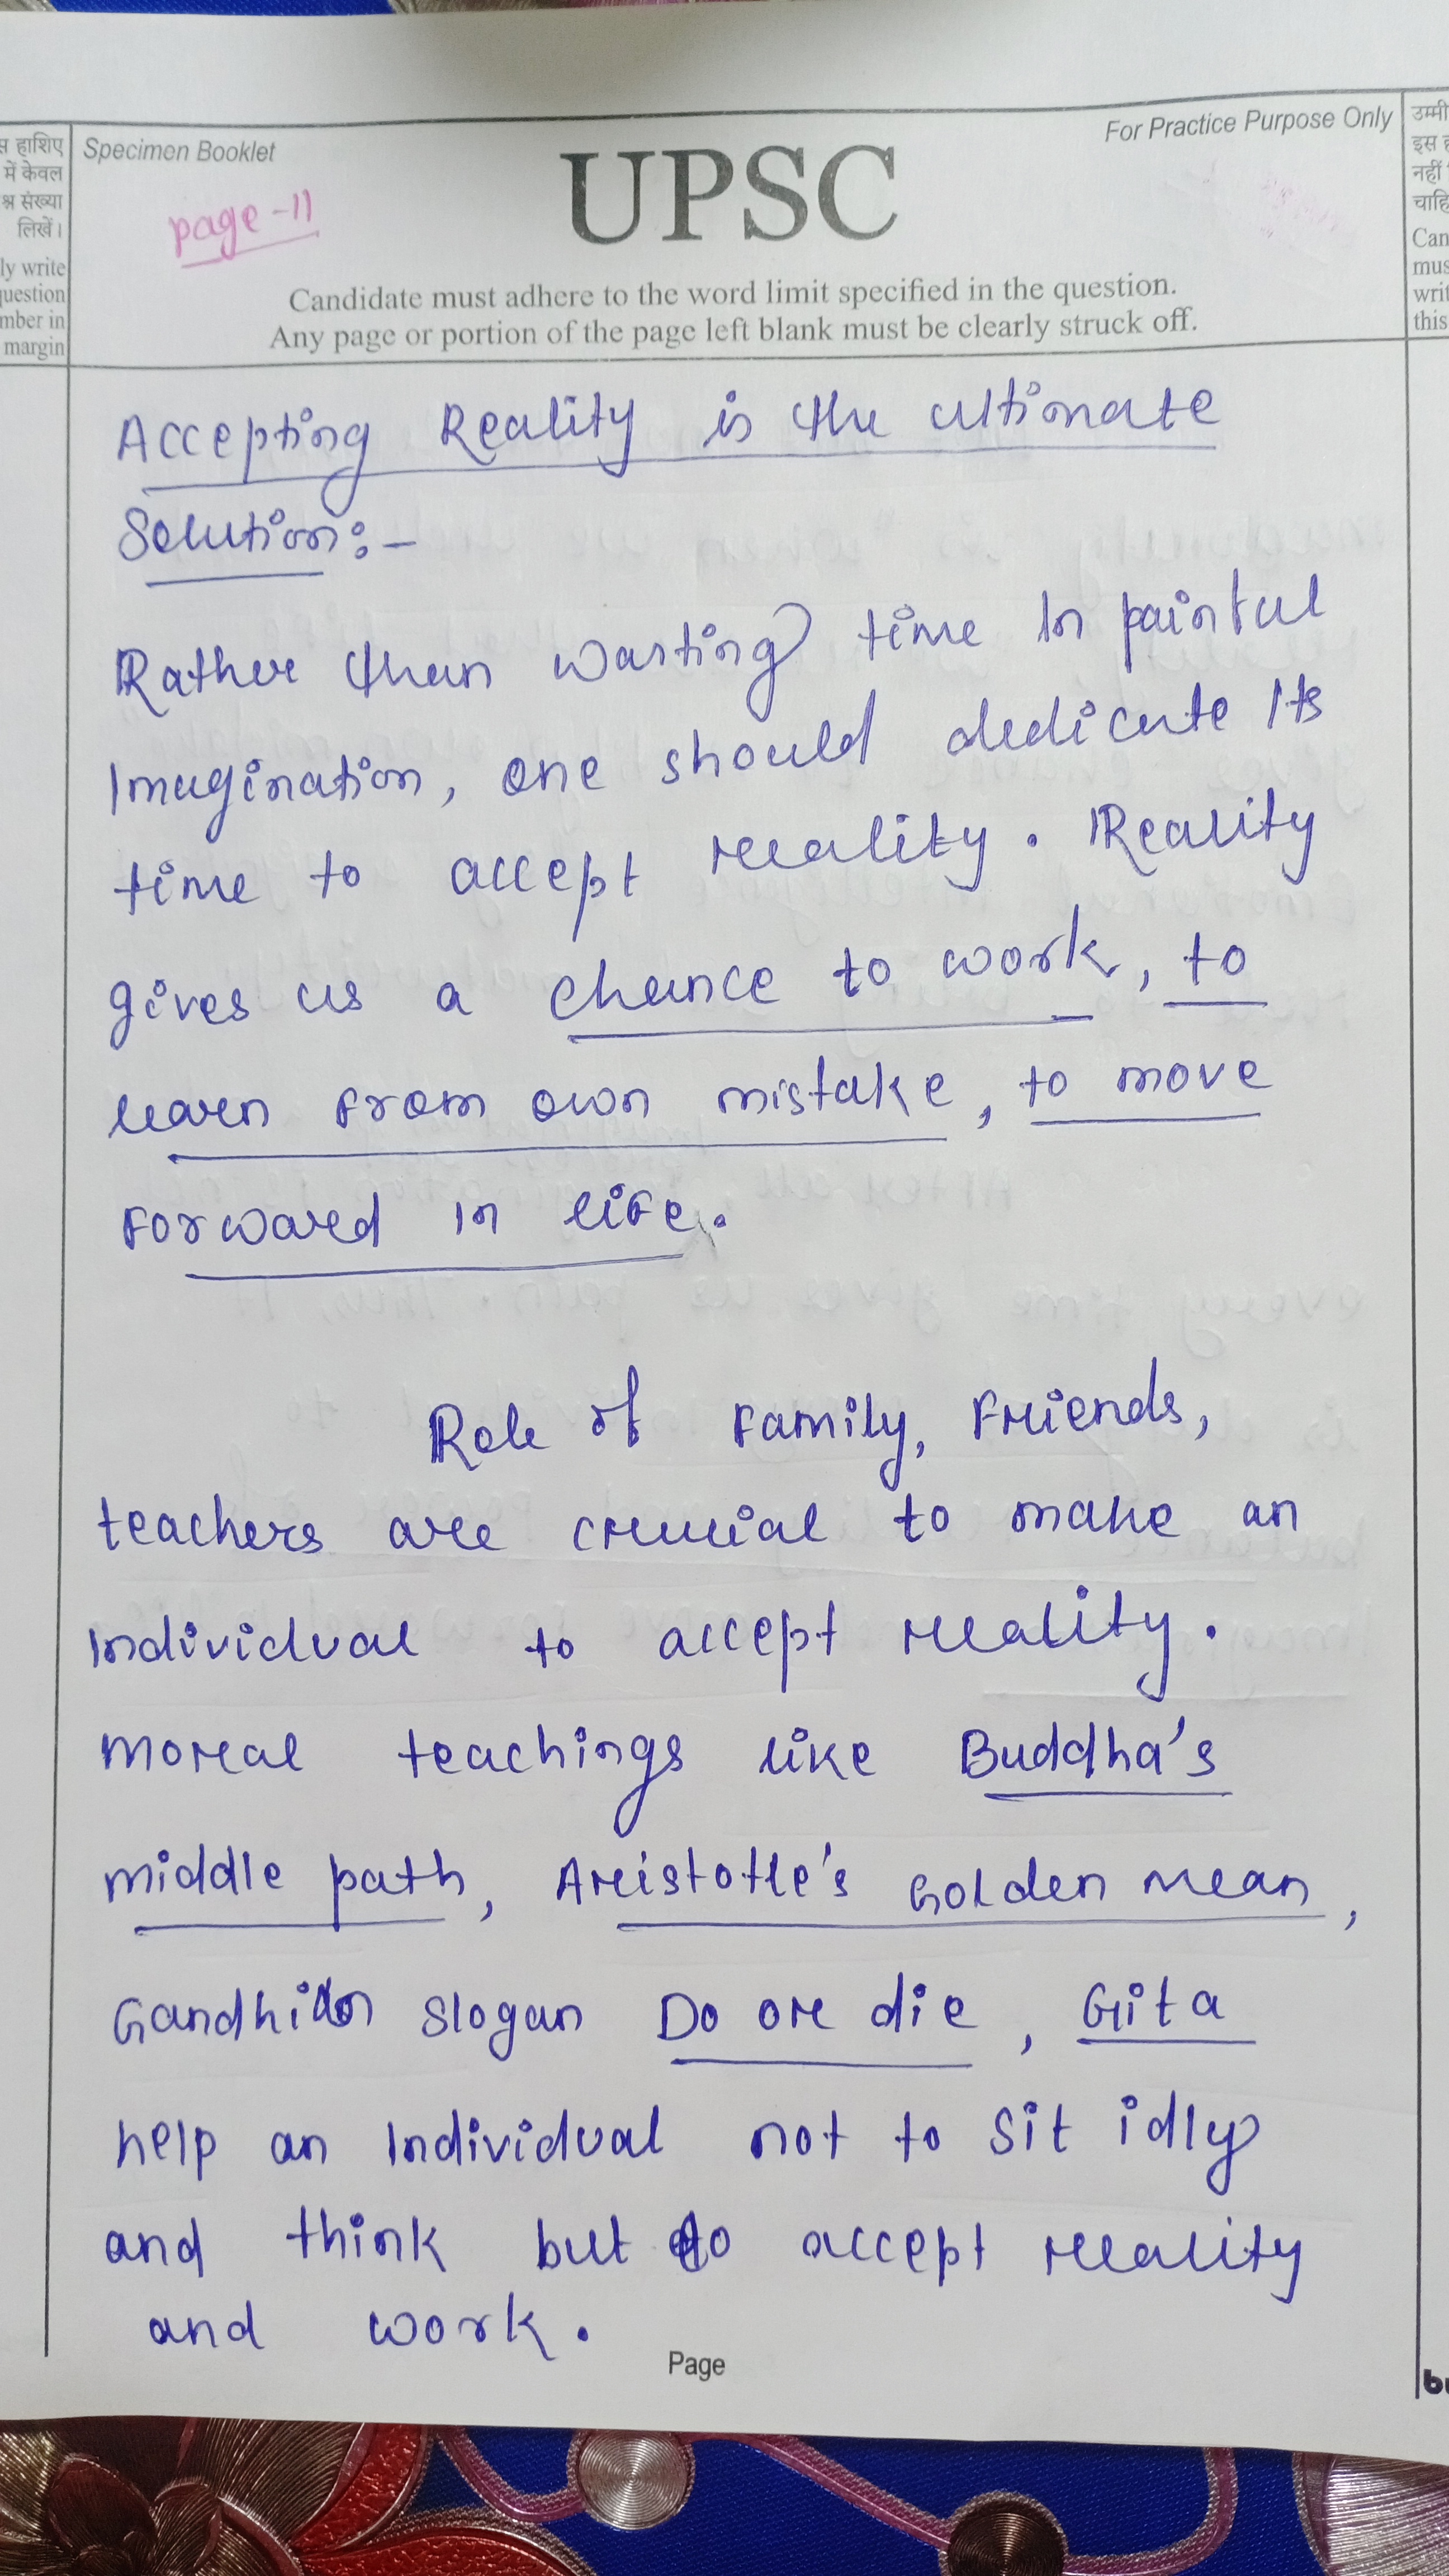 स हाशिए
में केवल
श्न संख्या
लिखें।
ly write
question
mber in
margin
Specimen Booklet
For Practice Purpose Only
page-11
UPSC
Candidate must adhere to the word limit specified in the question.
Any page or portion of the page left blank must be clearly struck off.
उम्मी
इस ह
नहीं
चाहि
Can
mus
writ
this
Accepting Reality is the ultimate
Solution:-
Rather than wasting time In painful
Imagination, one should dedicate Its
time to accept reality. Reality
gives us a chance to work, to
learn from own mistake, to move
forward in life.
Role of family, friends,
teachers are crucial to make an
Individual to accept reality.
moral teachings like Buddha's
middle path, Aristotle's Golden mean,
Gandhian slogan Do or die, Gita
help an Individual not to sit idly
and think but to accept reality
and work.
Page